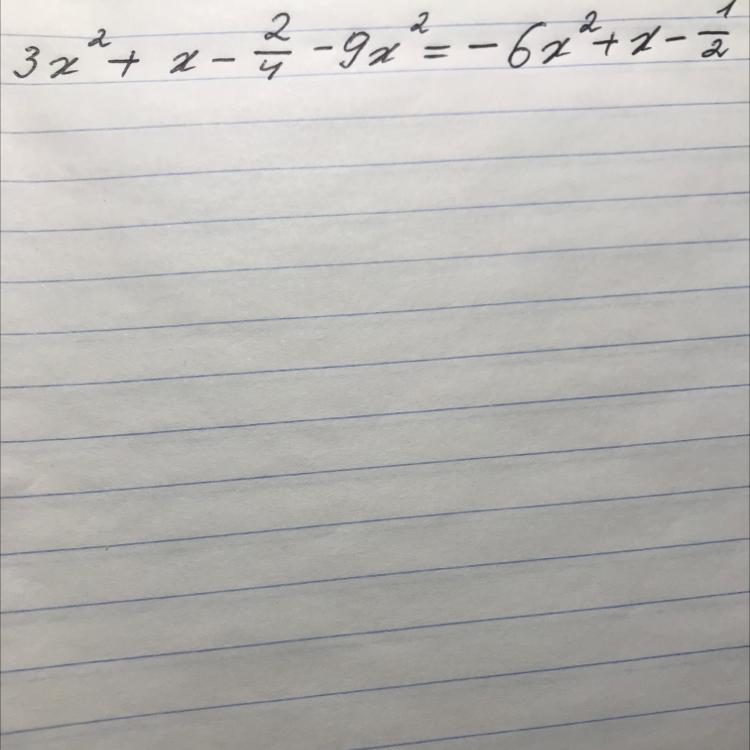 3x² + x - 2/4 - 9x² = - 6x² + x - 1/2